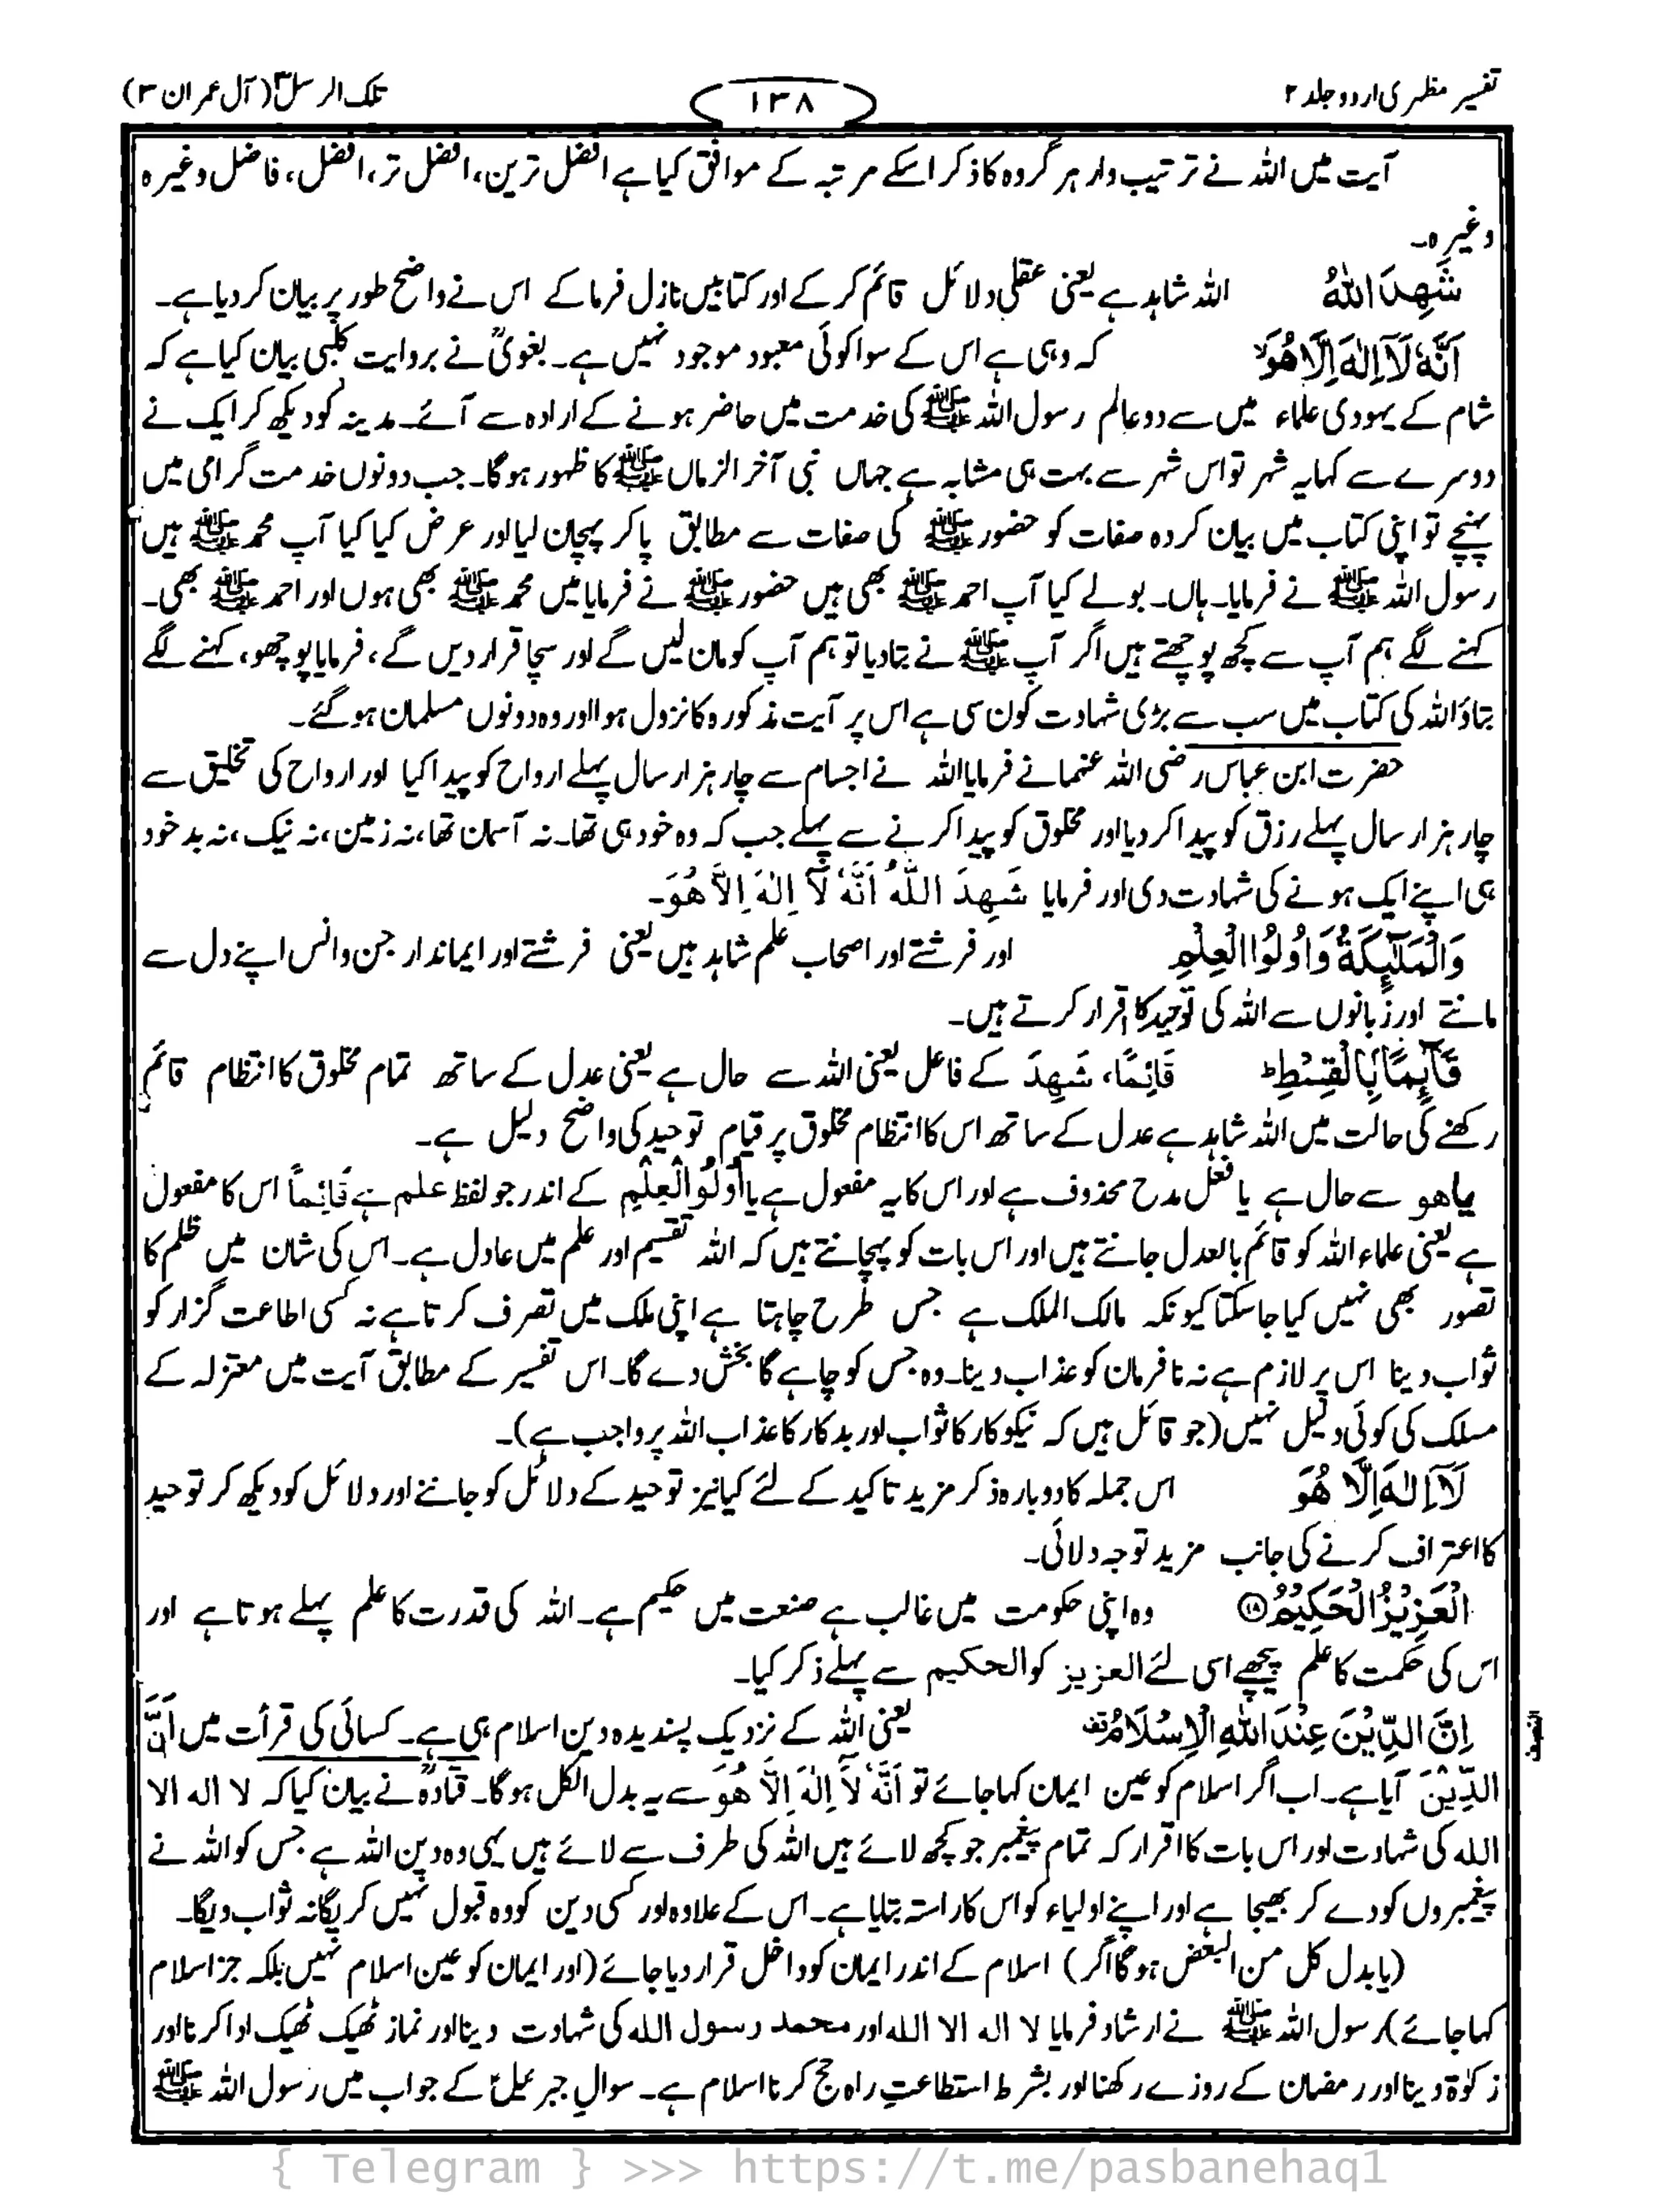 تفسیر مظہری اردو جلد ۲
۱۳۸
تلک الرسل ۳ (آل عمران ۳)
آیت میں اللہ نے ترتیب وار ہر گروہ کا ذکر اسکے مرتبہ کے موافق کیا ہے افضل ترین، افضل تر، افضل، فاضل وغیرہ
وغیرہ۔
شَهِدَ اللهُ اللہ شاہد ہے یعنی عقلی دلائل قائم کر کے اور کتابیں نازل فرما کے اس نے واضح طور پر بیان کر دیا ہے۔
اَنَّهٗ لَاۤ اِلٰهَ اِلَّا هُوَ ۙ کہ وہی ہے اس کے سوا کوئی معبود موجود نہیں ہے۔ بغویؒ نے بروایت کلبی بیان کیا ہے کہ
شام کے یہودی علماء میں سے دو عالم رسول اللہ ﷺ کی خدمت میں حاضر ہونے کے ارادہ سے آئے۔ مدینہ کو دیکھ کر ایک نے
دوسرے سے کہا یہ شہر تو اس شہر سے بہت ہی مشابہ ہے جہاں نبی آخر الزماں ﷺ کا ظہور ہوگا۔ جب دونوں خدمت گرامی میں
پہنچے تو اپنی کتاب میں بیان کردہ صفات کو حضور ﷺ کی صفات سے مطابق پا کر پہچان لیا اور عرض کیا کیا آپ محمد ﷺ ہیں
رسول اللہ ﷺ نے فرمایا۔ ہاں۔ بولے کیا آپ احمد ﷺ بھی ہیں حضور ﷺ نے فرمایا میں محمد ﷺ بھی ہوں اور احمد ﷺ بھی۔
کہنے لگے ہم آپ سے کچھ پوچھتے ہیں اگر آپ ﷺ نے بتا دیا تو ہم آپ کو مان لیں گے اور سچا قرار دیں گے، فرمایا پوچھو، کہنے لگے
بتاؤ اللہ کی کتاب میں سب سے بڑی شہادت کون سی ہے اس پر آیت مذکورہ کا نزول ہوا اور وہ دونوں مسلمان ہو گئے۔
حضرت ابن عباس رضی اللہ عنہما نے فرمایا اللہ نے اجسام سے چار ہزار سال پہلے ارواح کو پیدا کیا اور ارواح کی تخلیق سے
چار ہزار سال پہلے رزق کو پیدا کر دیا اور مخلوق کو پیدا کرنے سے پہلے جب کہ وہ خود ہی تھا۔ نہ آسمان تھا، نہ زمین، نہ نیک، نہ بد خود
ہی اپنے ایک ہونے کی شہادت دی اور فرمایا شَهِدَ اللّٰهُ اَنَّهٗ لَاۤ اِلٰهَ اِلَّا هُوَ۔
وَالْمَلٰٓئِكَةُ وَاُولُوا الْعِلْمِ اور فرشتے اور اصحاب علم شاہد ہیں یعنی فرشتے اور ایماندار جن وانس اپنے دل سے
مانتے اور زبانوں سے اللہ کی توحید کا اقرار کرتے ہیں۔
قَآئِمًۢا بِالْقِسْطِ ؕ قَائِمًا، شَهِدَ کے فاعل یعنی اللہ سے حال ہے یعنی عدل کے ساتھ تمام مخلوق کا انتظام قائم
رکھنے کی حالت میں اللہ شاہد ہے عدل کے ساتھ اس کا انتظام مخلوق پر قیام توحید کی واضح دلیل ہے۔
یا هو سے حال ہے یا فعل مدح محذوف ہے اور اس کا یہ مفعول ہے یا اُولُوا الْعِلْمِ کے اندر جو لفظ علم ہے قَائِمًا اس کا مفعول
ہے یعنی علماء اللہ کو قائم بالعدل جانتے ہیں اور اس بات کو پہچانتے ہیں کہ اللہ تقسیم اور علم میں عادل ہے۔ اس کی شان میں ظلم کا
تصور بھی نہیں کیا جا سکتا کیونکہ مالک الملک ہے جس طرح چاہتا ہے اپنی ملک میں تصرف کرتا ہے نہ کسی اطاعت گزار کو
ثواب دینا اس پر لازم ہے نہ نافرمان کو عذاب دینا۔ وہ جس کو چاہے گا بخش دے گا۔ اس تفسیر کے مطابق آیت میں معتزلہ کے
مسلک کی کوئی دلیل نہیں (جو قائل ہیں کہ نیکوکار کا ثواب اور بدکار کا عذاب اللہ پر واجب ہے)۔
لَاۤ اِلٰهَ اِلَّا هُوَ اس جملہ کا دوبارہ ذکر مزید تاکید کے لئے کیا نیز توحید کے دلائل کو جاننے اور دلائل کو دیکھ کر توحید
کا اعتراف کرنے کی جانب مزید توجہ دلائی۔
الْعَزِیْزُ الْحَكِیْمُ ۝۱۸ وہ اپنی حکومت میں غالب ہے صنعت میں حکیم ہے۔ اللہ کی قدرت کا علم پہلے ہوتا ہے اور
اس کی حکمت کا علم پیچھے اسی لئے العزیز کو الحکیم سے پہلے ذکر کیا۔
اِنَّ الدِّیْنَ عِنْدَ اللهِ الْاِسْلَامُ یعنی اللہ کے نزدیک پسندیدہ دین اسلام ہی ہے۔ کسائی کی قرأت میں اَنَّ
النصف
الدِّیْنَ آیا ہے۔ اب اگر اسلام کو عین ایمان کہا جائے تو اَنَّهٗ لَاۤ اِلٰهَ اِلَّا هُوَ سے یہ بدل الکل ہوگا۔ قتادہؒ نے بیان کیا کہ لا اله الا
الله کی شہادت اور اس بات کا اقرار کہ تمام پیغمبر جو کچھ لائے ہیں اللہ کی طرف سے لائے ہیں یہی وہ دین اللہ ہے جس کو اللہ نے
پیغمبروں کو دے کر بھیجا ہے اور اپنے اولیاء کو اس کا راستہ بتلایا ہے۔ اس کے علاوہ اور کسی دین کو وہ قبول نہیں کریگا نہ ثواب دیگا۔
(یا بدل کل من البعض ہوگا اگر) اسلام کے اندر ایمان کو داخل قرار دیا جائے (اور ایمان کو عین اسلام نہیں بلکہ جز اسلام
کہا جائے) رسول اللہ ﷺ نے ارشاد فرمایا لا اله الا الله اور محمد رسول الله کی شہادت دینا اور نماز ٹھیک ٹھیک ادا کرنا اور
زکوٰۃ دینا اور رمضان کے روزے رکھنا اور بشرط استطاعتِ راہ حج کرنا اسلام ہے۔ سوالِ جبرئیلؑ کے جواب میں رسول اللہ ﷺ
{ Telegram } >>> https://t.me/pasbanehaq1